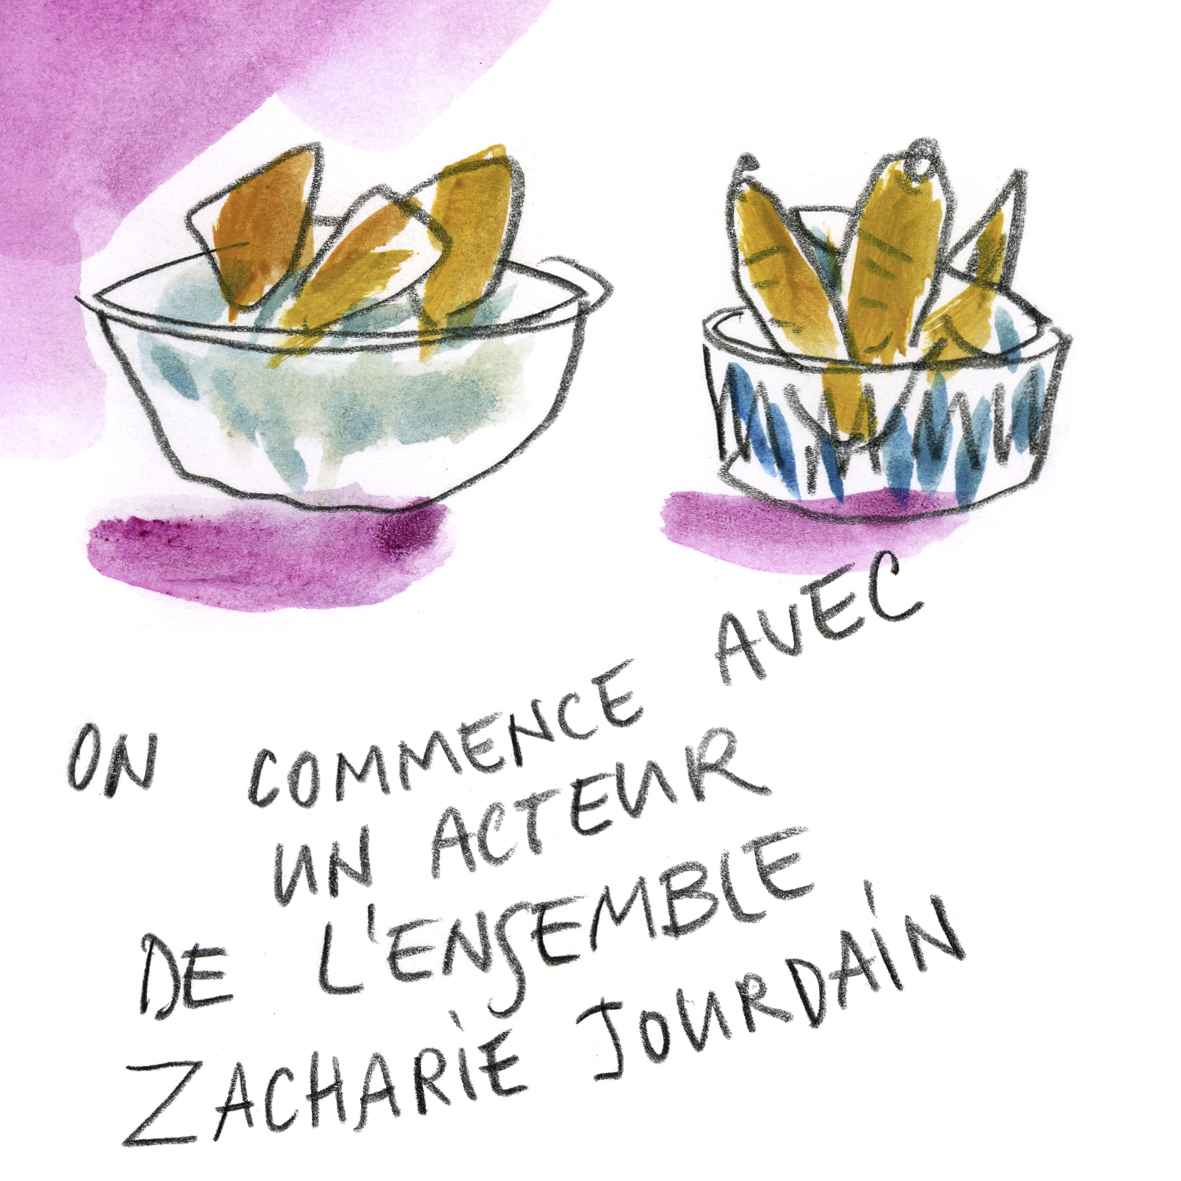 ON COMMENCE AVEC
UN ACTEUR
DE L'ENSEMBLE
ZACHARIE JOURDAIN